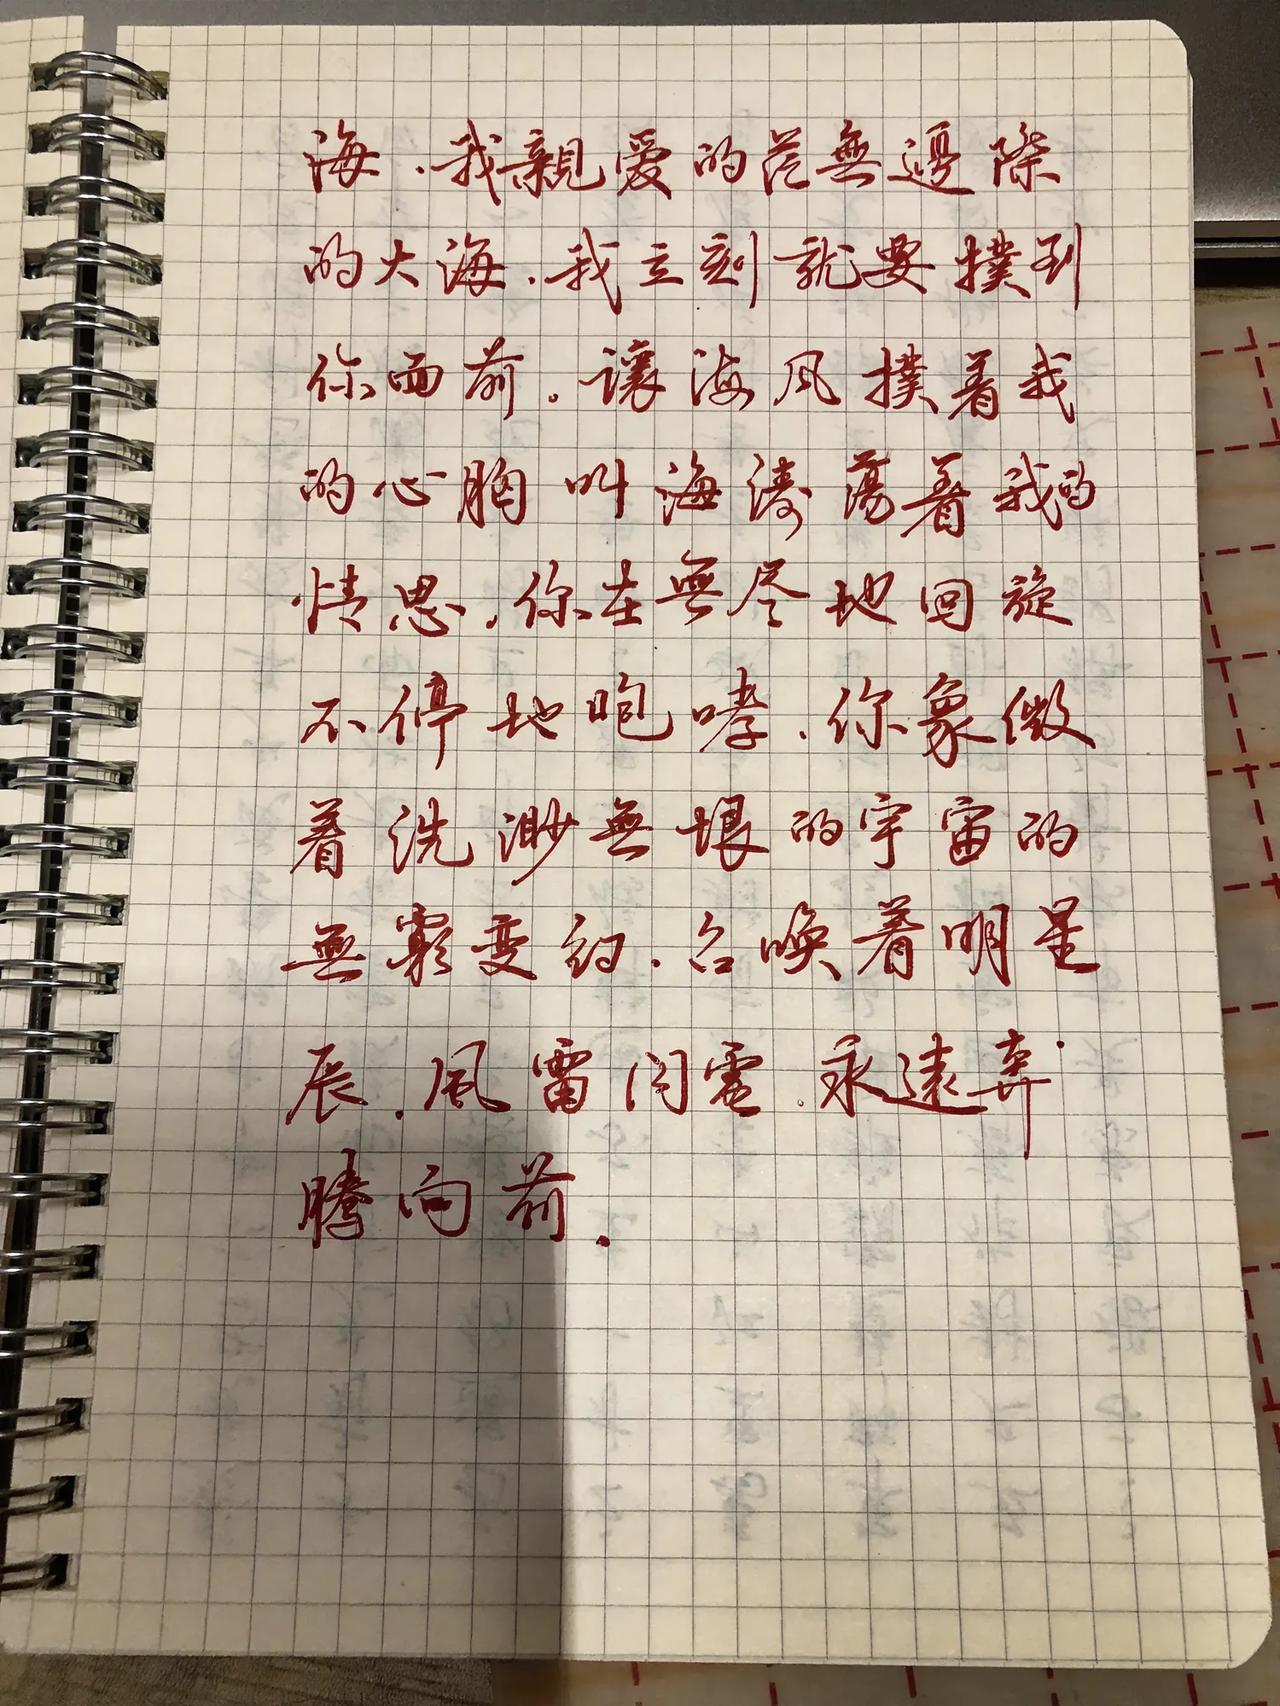 海.我親爱的茫無邊際
的大海.我立刻就要撲到
你面前。讓海风撲着我
的心胸 叫海濤蕩着我的
情思.你在無尽地回旋
不停地咆哮.你象微
着浩渺無垠的宇宙的
無窮变幻.召唤着明星
辰.風雷闪電.永遠奔
騰向前.